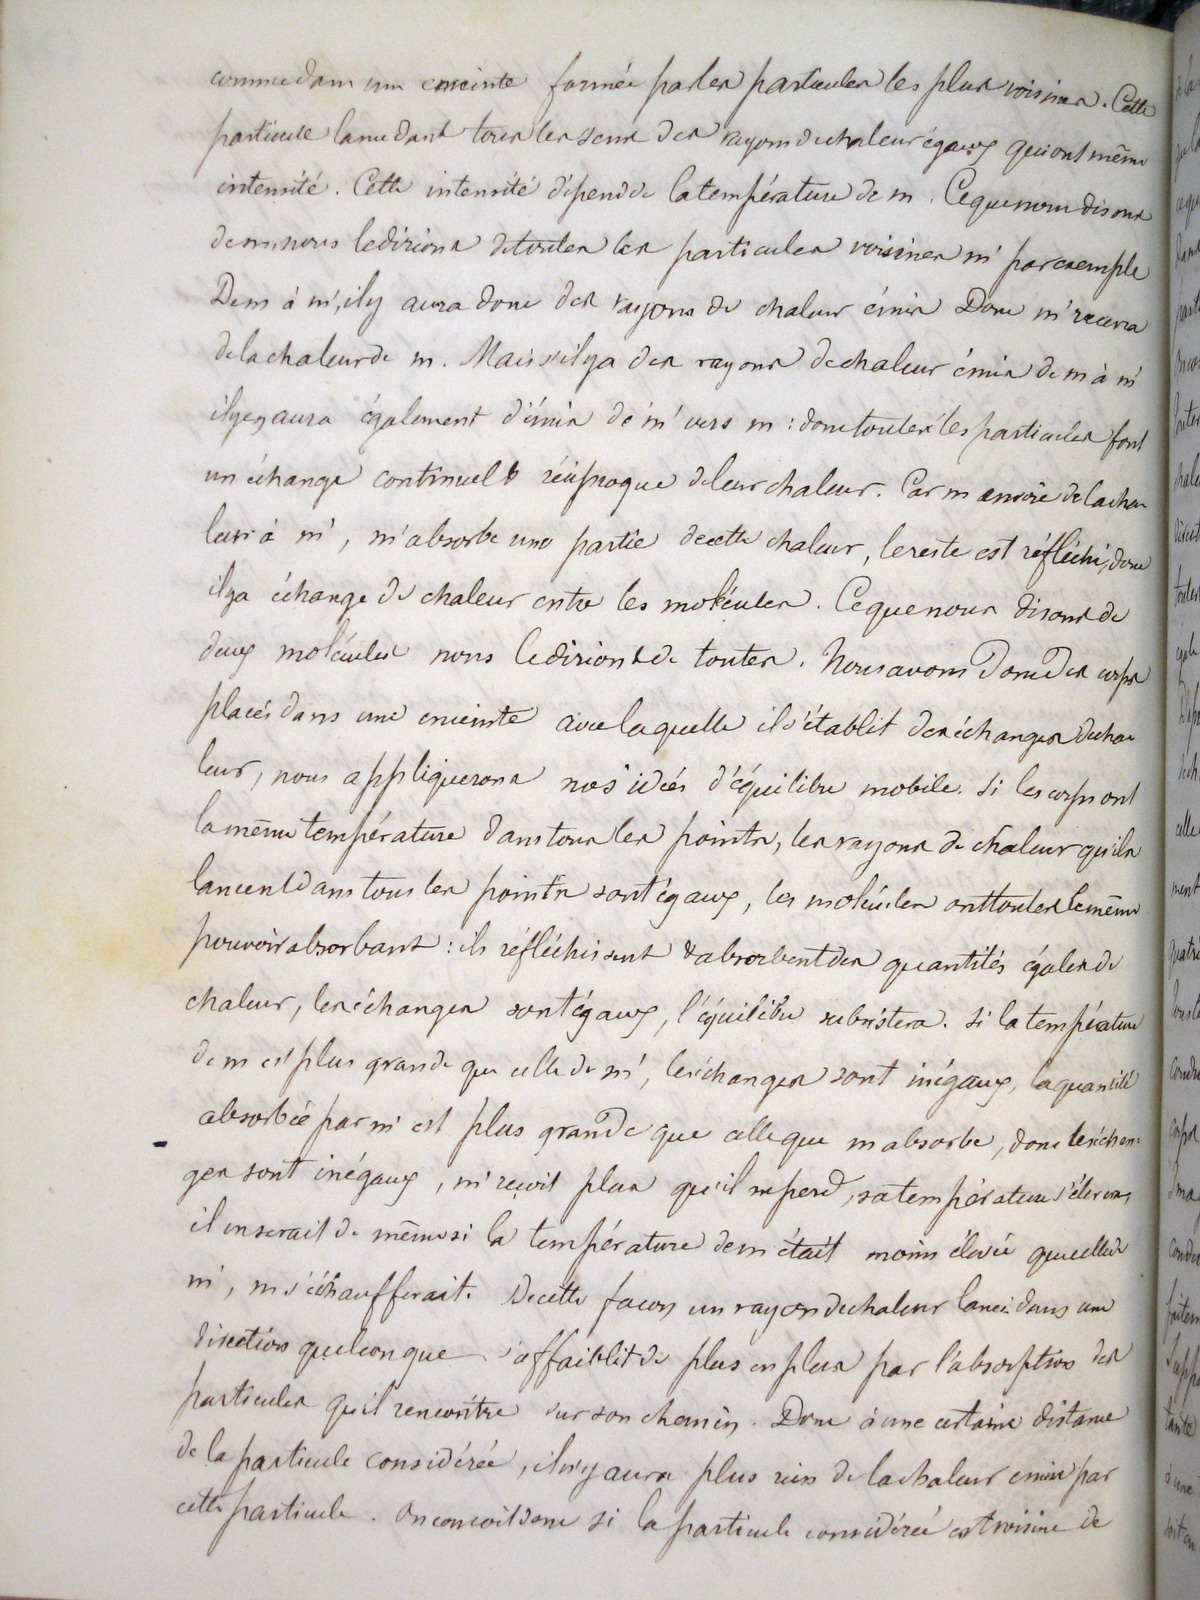 comme dans une enceinte formée par les particules les plus voisines. Cette
particule lance dans tous les sens des rayons de chaleur égaux qui ont même
intensité. Cette intensité dépend de la température de m. Ce que nous disons
de m nous le dirions de toutes les particules voisines m' par exemple
De m à m', il y aura donc des rayons de chaleur émis Donc m' recevra
de la chaleur de m. Mais s'il y a des rayons de chaleur émis de m à m'
il y en aura également d'émis de m' vers m : donc toutes les particules font
un échange continuel & réciproque de leur chaleur. Car m envoie de la cha
leur à m', m' absorbe une partie de cette chaleur, le reste est réfléchi, donc
il y a échange de chaleur entre les molécules. Ce que nous disons de
deux molécules nous le dirions de toutes. Nous avons donc des corps
placés dans une enceinte avec laquelle il s'établit des échanges de cha
leur, nous appliquerons nos idées d'équilibre mobile. Si les corps ont
la même température dans tous les points, les rayons de chaleur qu'ils
lancent dans tous les points sont égaux, les molécules ont toutes le même
pouvoir absorbant : ils réfléchissent & absorbent des quantités égales de
chaleur, les échanges sont égaux, l'équilibre subsistera. Si la température
de m est plus grande que celle de m', les échanges sont inégaux, la quantité
absorbée par m' est plus grande que celle que m absorbe, donc les échan-
ges sont inégaux, m' reçoit plus qu'il ne perd, sa température s'élevera,
il en serait de même si la température de m était moins élevée que celle de
m', m s'échaufferait. De cette façon un rayon de chaleur lancé dans une
direction quelconque s'affaiblit de plus en plus par l'absorption des
particules qu'il rencontre sur son chemin. Donc à une certaine distance
de la particule considérée, il n'y aura plus rien de la chaleur émise par
cette particule. On conçoit donc si la particule considérée est voisine de